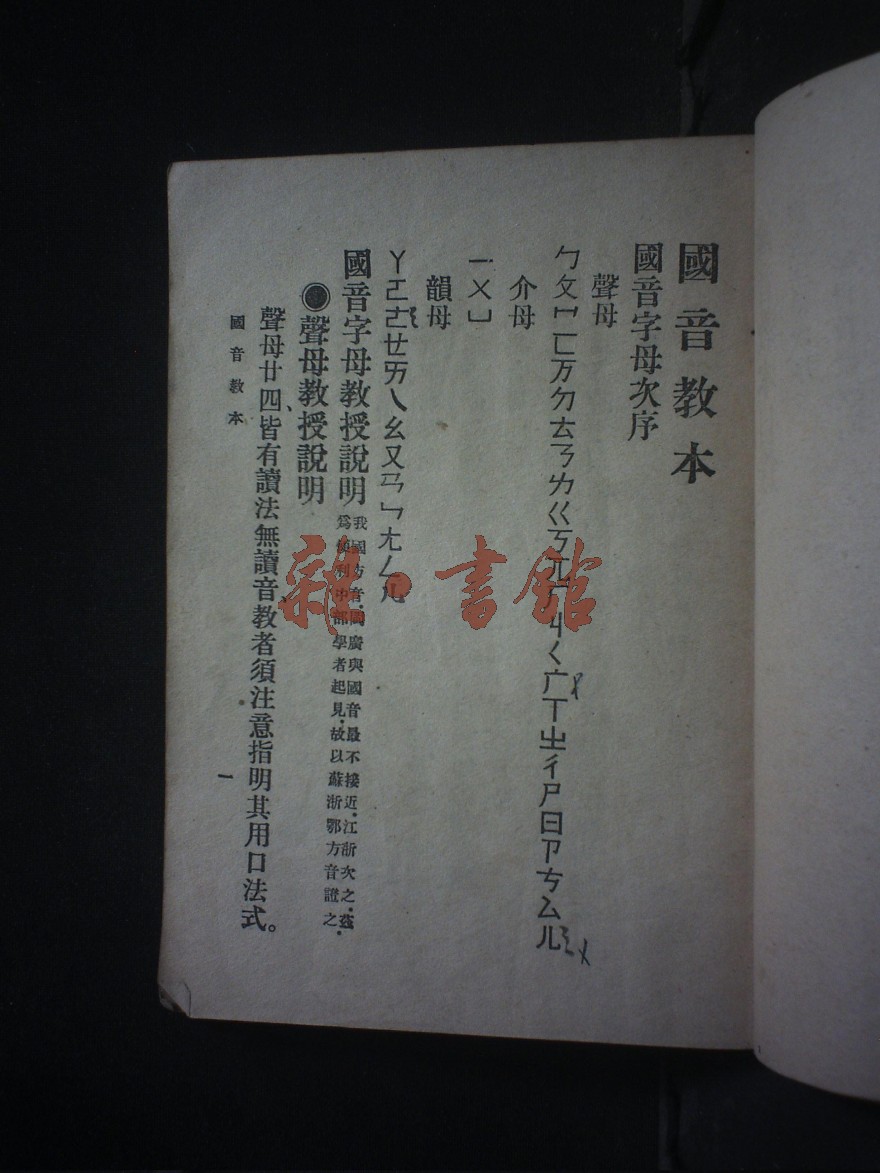 國音教本
國音字母次序
聲母
ㄅㄆㄇㄈㄪㄉㄊㄋㄌㄍㄎㄫㄏㄐㄑㄬㄒㄓㄔㄕㄖㄗㄘㄙㄦ
介母
一ㄨㄩ
韻母
ㄚㄛㄜㄝㄞㄟㄠㄡㄢㄣㄤㄥㄦ
國音字母教授說明
我國方音，閩廣與國音最不接近，江浙次之，茲
爲便利中部學者起見，故以蘇浙鄂方音證之。
●聲母教授說明
聲母廿四、皆有讀法無讀音、教者須注意指明其用口法式。
國音教本
一
雜·書館